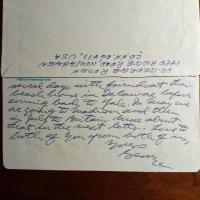 DR. GEORGE ROSEN
1490 RIDGE ROAD, NORTH HAVEN
CONN. 06473, USA
several days with friends at their
beach home in Delaware before
coming back to Yale. In May we
are going to Madison and then
in July to Britain. More about
that in the next letter. Love to
both of you from both of us,
Yours
George